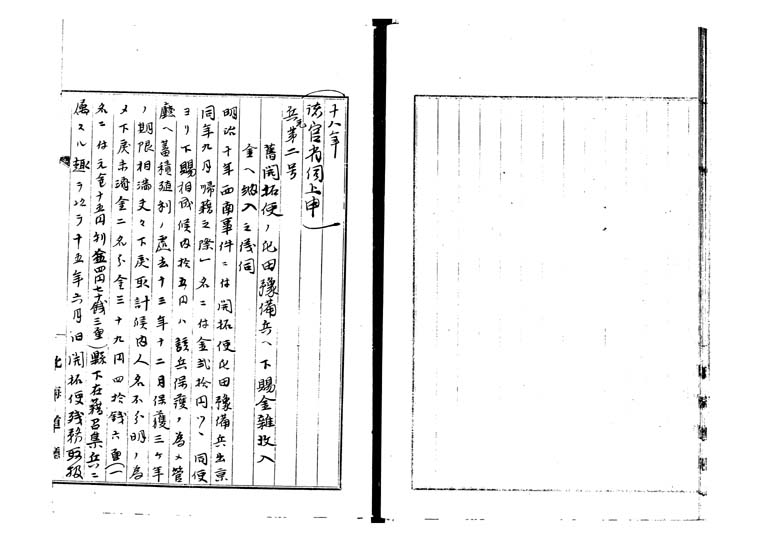 十八年
諸官省伺上申
兵第二号
舊開拓使ノ屯田豫備兵ヘ下賜金雜收入
金ヘ納入之儀伺
明治十年西南事件ニ付開拓使屯田豫備兵出京
同年九月帰籍之際一名ニ付金弐拾円ツヽ同使
ヨリ下賜相成候内拾五円ハ該兵保護ノ為メ管
廳ヘ蓄積殖利ノ處去十三年十二月保護三ケ年
ノ期限相満夫々下戻取計候内人名不分明ノ為
メ下戻未濟金二名分金三十九円四拾銭六厘(一
名ニ付元金十五円利金四円七十銭三厘)縣下在籍召集兵ニ
属スル趣ヲ以ラ十五年六月旧開拓使残務取扱